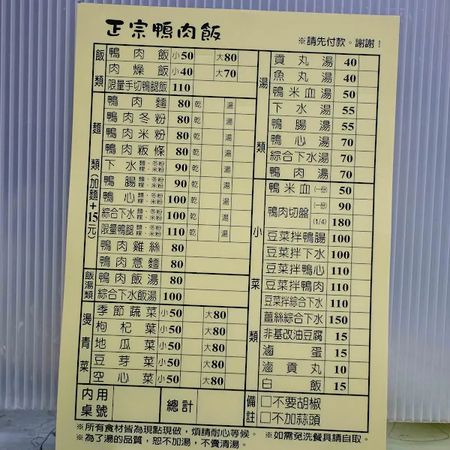 正宗鴨肉飯
※請先付款。謝謝！
飯類
鴨肉飯 小50 大80
肉燥飯 小40 大70
限量手切鴨腿飯 110
麵類(加麵+15元)
鴨肉麵 80 乾 湯
鴨肉冬粉 80 乾 湯
鴨肉米粉 80 乾 湯
鴨肉粄條 80 乾 湯
下水 麵 冬粉 粄條 米粉 90 乾 湯
鴨腸 麵 冬粉 粄條 米粉 90 乾 湯
鴨心 麵 冬粉 粄條 米粉 100 乾 湯
綜合下水 麵 冬粉 粄條 米粉 100 乾 湯
限量鴨腿 麵 冬粉 粄條 米粉 110 乾 湯
鴨肉雞絲 80
鴨肉意麵 80
飯湯類
鴨肉飯湯 80
綜合下水飯湯 100
燙青菜
季節蔬菜 小50 大80
枸杞葉 小50 大80
地瓜菜 小50 大80
豆芽菜 小50 大80
空心菜 小50 大80
內用桌號
總計
湯類
貢丸湯 40
魚丸湯 40
鴨米血湯 50
下水湯 55
鴨腸湯 55
鴨心湯 70
綜合下水湯 70
鴨肉湯 70
小菜類
鴨米血(一份) 50
鴨肉切盤 (一份) 90
(1/4) 180
豆菜拌鴨腸 100
豆菜拌下水 100
豆菜拌鴨心 110
豆菜拌鴨肉 110
豆菜拌綜合下水 110
薑絲綜合下水 150
非基改油豆腐 15
滷蛋 15
滷貢丸 10
白飯 15
備註
□不要胡椒
□不加蒜頭
※所有食材皆為現點現做，煩請耐心等候。
※為了湯的品質，恕不加湯，不賣清湯。
※如需免洗餐具請自取。